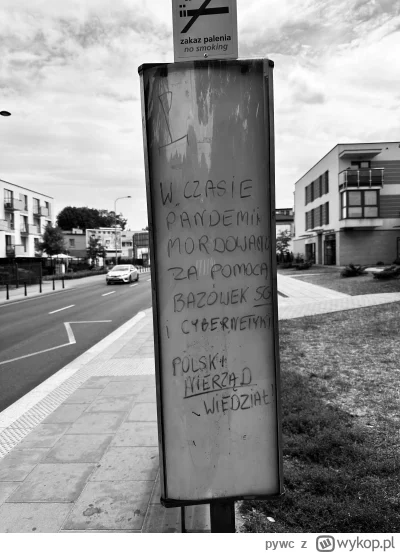 zakaz palenia
no smoking
W CZASIE
PANDEMII
MORDOWANO
ZA POMOCĄ
BAZÓWEK 5G
I CYBERNETYKI
POLSKI
NIERZĄD
WIEDZIAŁ!
pywc z wykop.pl